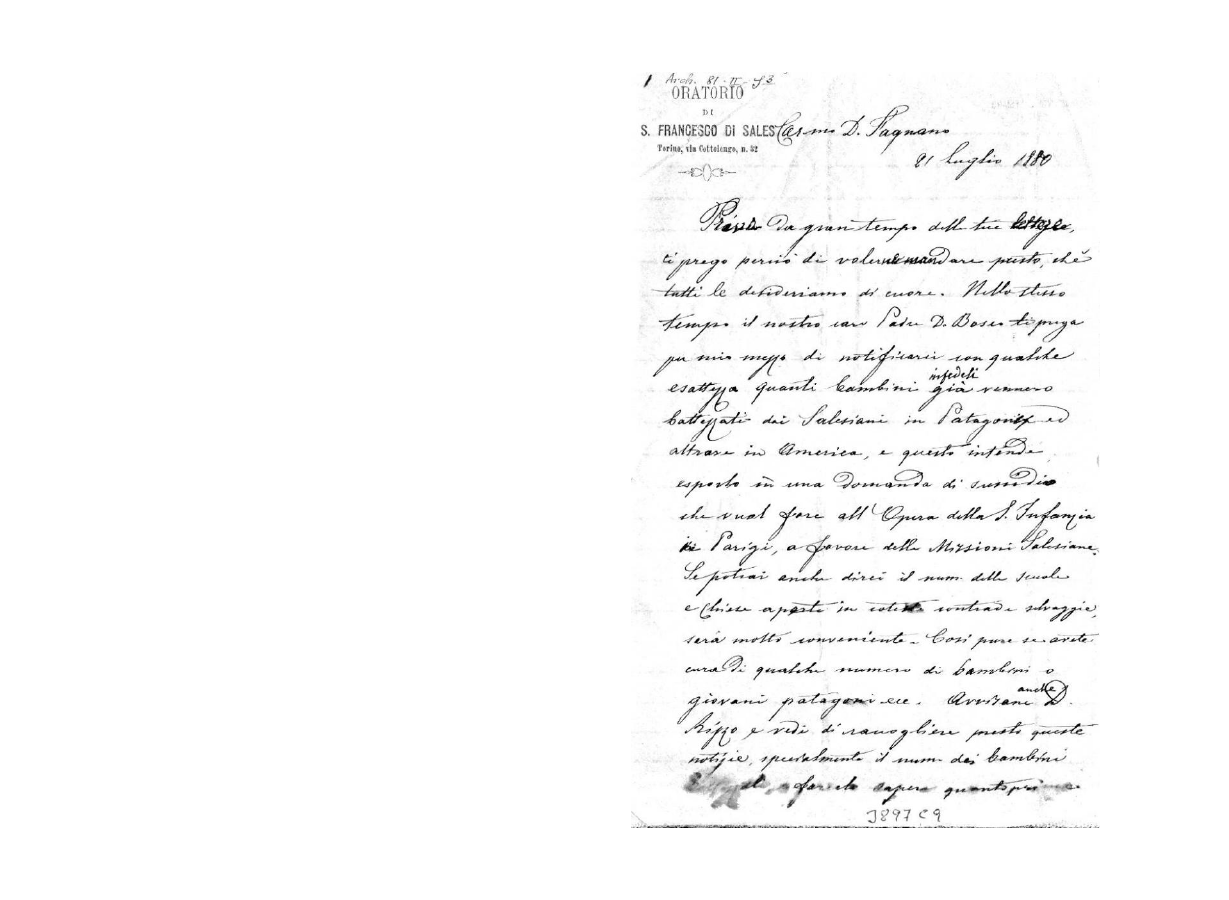 1 Arch. 81-II-
ORATORIO
DI
S. FRANCESCO DI SALES Car.mo D. Fagnano
Torino, via Cottolengo, n. 32
21 luglio 1880
Privo da gran tempo delle tue lettere,
ti prego perciò di volerne mandare presto, chè
tutti le desideriamo di cuore. Nello stesso
tempo il nostro caro Padre D. Bosco ti prega
per mio mezzo di notificarci con qualche
infedeli
esattezza quanti bambini già vennero
battezzati dai Salesiani in Patagonia ed
altrove in America, e questo intende
esporlo in una domanda di sussidio
che vuol fare all'Opera della S. Infanzia
di Parigi, a favore delle Missioni Salesiane.
Se potrai anche dirci il num. delle scuole
e Chiese aperte in coteste contrade selvaggie,
sarà molto conveniente. Così pure se avete
cura di qualche numero di bambini o
anche
giovani patagoni ecc. Avvisane D.
Rizzo e vedi di raccogliere presto queste
notizie, specialmente il num. dei bambini
e farcelo sapere quanto prima
J897C9